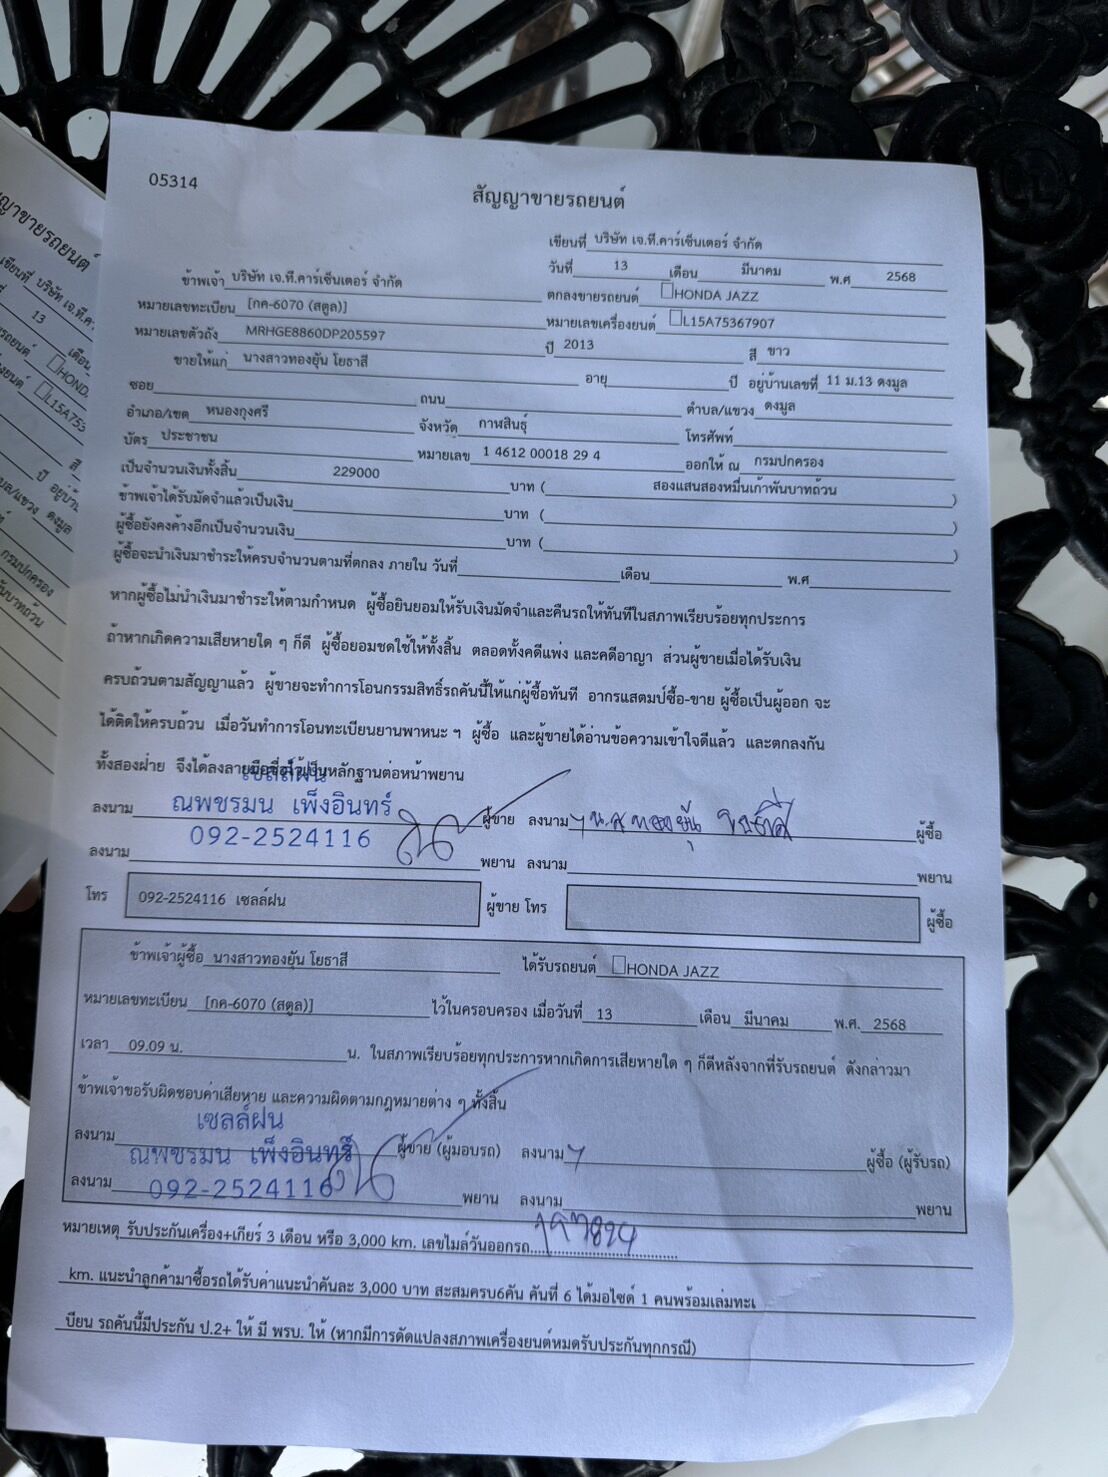 05314
สัญญาขายรถยนต์
เขียนที่ บริษัท เจ.ที.คาร์เซ็นเตอร์ จำกัด
วันที่ 13 เดือน มีนาคม พ.ศ 2568
ข้าพเจ้า บริษัท เจ.ที.คาร์เซ็นเตอร์ จำกัด ตกลงขายรถยนต์ HONDA JAZZ
หมายเลขทะเบียน [กค-6070 (สตูล)] หมายเลขเครื่องยนต์ L15A75367907
หมายเลขตัวถัง MRHGE8860DP205597 ปี 2013 สี ขาว
ขายให้แก่ นางสาวทองยุ้น โยธาสี อายุ ปี อยู่บ้านเลขที่ 11 ม.13 ดงมูล
ซอย ถนน ตำบล/แขวง ดงมูล
อำเภอ/เขต หนองกุงศรี จังหวัด กาฬสินธุ์ โทรศัพท์
บัตร ประชาชน หมายเลข 1 4612 00018 29 4 ออกให้ ณ กรมปกครอง
เป็นจำนวนเงินทั้งสิ้น 229000 บาท ( สองแสนสองหมื่นเก้าพันบาทถ้วน )
ข้าพเจ้าได้รับมัดจำแล้วเป็นเงิน บาท ( )
ผู้ซื้อยังคงค้างอีกเป็นจำนวนเงิน บาท ( )
ผู้ซื้อจะนำเงินมาชำระให้ครบจำนวนตามที่ตกลง ภายใน วันที่ เดือน พ.ศ
หากผู้ซื้อไม่นำเงินมาชำระให้ตามกำหนด ผู้ซื้อยินยอมให้รับเงินมัดจำและคืนรถให้ทันทีในสภาพเรียบร้อยทุกประการ
ถ้าหากเกิดความเสียหายใด ๆ ก็ดี ผู้ซื้อยอมชดใช้ให้ทั้งสิ้น ตลอดทั้งคดีแพ่ง และคดีอาญา ส่วนผู้ขายเมื่อได้รับเงิน
ครบถ้วนตามสัญญาแล้ว ผู้ขายจะทำการโอนกรรมสิทธิ์รถคันนี้ให้แก่ผู้ซื้อทันที อากรแสตมป์ซื้อ-ขาย ผู้ซื้อเป็นผู้ออก จะ
ได้ติดให้ครบถ้วน เมื่อวันทำการโอนทะเบียนยานพาหนะ ฯ ผู้ซื้อ และผู้ขายได้อ่านข้อความเข้าใจดีแล้ว และตกลงกัน
ทั้งสองฝ่าย จึงได้ลงลายมือชื่อไว้เป็นหลักฐานต่อหน้าพยาน
เซลล์ฝน
ลงนาม ณพชรมน เพ็งอินทร์ ผู้ขาย ลงนาม น.ส ทองยุ้น โยธาสี ผู้ซื้อ
092-2524116
ลงนาม พยาน ลงนาม พยาน
โทร 092-2524116 เซลล์ฝน ผู้ขาย โทร ผู้ซื้อ
ข้าพเจ้าผู้ซื้อ นางสาวทองยุ้น โยธาสี ได้รับรถยนต์ HONDA JAZZ
หมายเลขทะเบียน [กค-6070 (สตูล)] ไว้ในครอบครอง เมื่อวันที่ 13 เดือน มีนาคม พ.ศ. 2568
เวลา 09.09 น. น. ในสภาพเรียบร้อยทุกประการหากเกิดการเสียหายใด ๆ ก็ดีหลังจากที่รับรถยนต์ ดังกล่าวมา
ข้าพเจ้าขอรับผิดชอบค่าเสียหาย และความผิดตามกฎหมายต่าง ๆ ทั้งสิ้น
เซลล์ฝน
ลงนาม ณพชรมน เพ็งอินทร์ ผู้ขาย (ผู้มอบรถ) ลงนาม ผู้ซื้อ (ผู้รับรถ)
092-2524116
ลงนาม พยาน ลงนาม พยาน
หมายเหตุ รับประกันเครื่อง+เกียร์ 3 เดือน หรือ 3,000 km. เลขไมล์วันออกรถ
km. แนะนำลูกค้ามาซื้อรถได้รับค่าแนะนำคันละ 3,000 บาท สะสมครบ6คัน คันที่ 6 ได้มอไซด์ 1 คนพร้อมเล่มทะเ
บียน รถคันนี้มีประกัน ป.2+ ให้ มี พรบ. ให้ (หากมีการดัดแปลงสภาพเครื่องยนต์หมดรับประกันทุกกรณี)